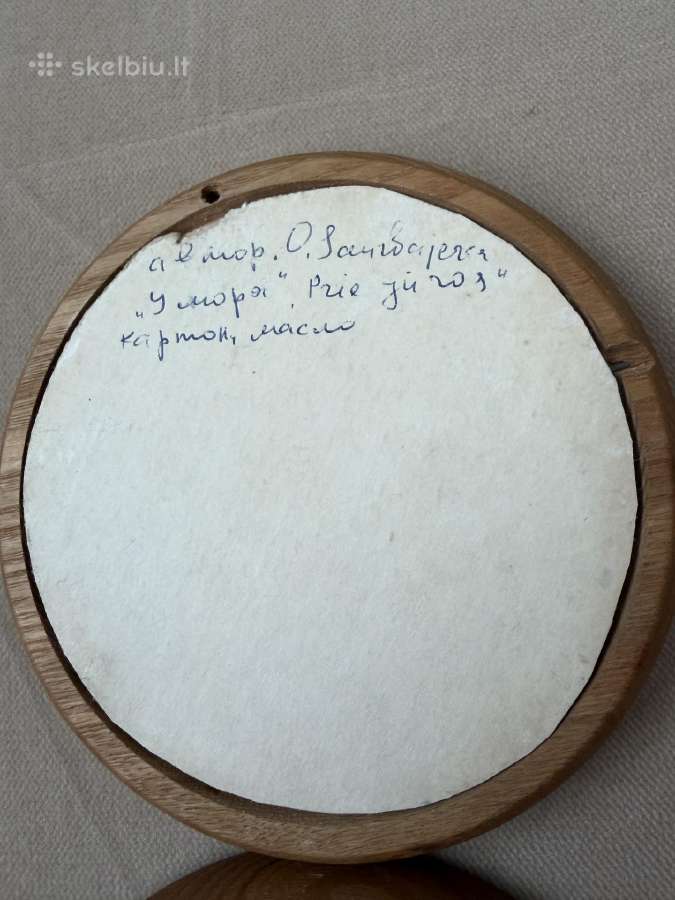 skelbiu.lt
автор. O.
„У моря" „Prie jūros"
картон, масло